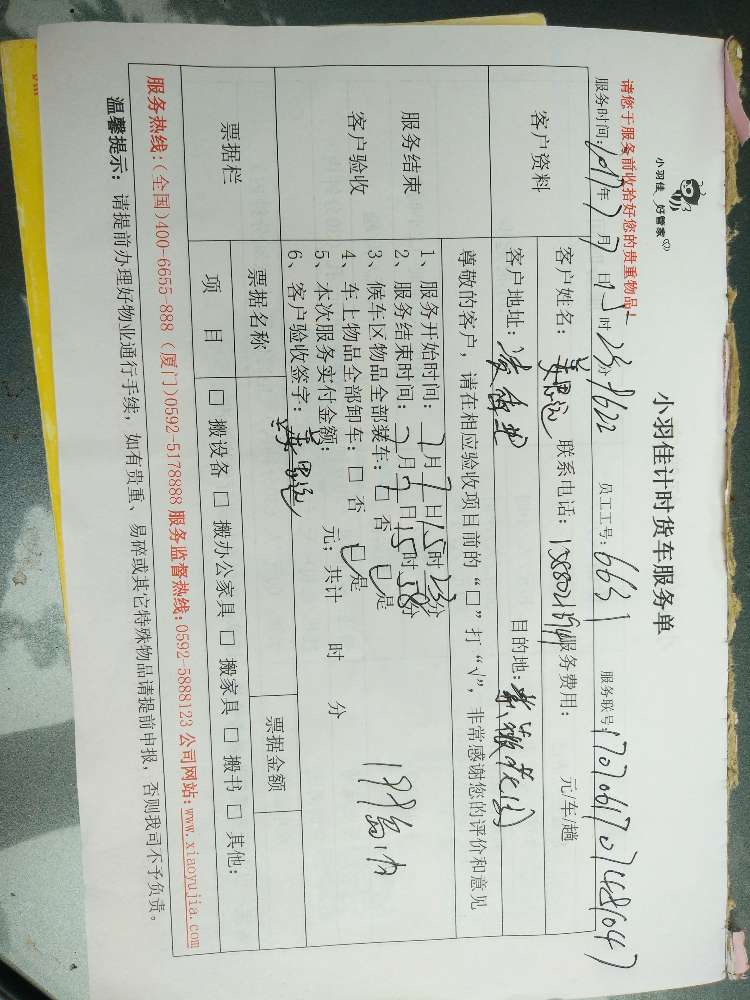 小羽佳 好管家
小羽佳计时货车服务单
请您于服务前收拾好您的贵重物品！
服务时间：2017年7月7日15时23分 员工工号：6631 服务联号：
客户资料
客户姓名： 联系电话： 服务费用： 元/车/趟
客户地址： 目的地：紫薇花园
尊敬的客户，请在相应验收项目前的“□”打“√”，非常感谢您的评价和意见
服务结束
客户验收
1、服务开始时间：7月7日15时23分
2、服务结束时间：7月7日15时58分
3、候车区物品全部装车：□否 □是
4、车上物品全部卸车：□否 □是
5、本次服务实付金额： 元；共计 时 分
6、客户验收签字：
票据栏
票据名称 票据金额
项 目 □搬设备 □搬办公家具 □搬家具 □搬书 □其他：
服务热线：（全国）400-6655-888（厦门）0592-5178888 服务监督热线：0592-5888123 公司网站：www.xiaoyujia.com
温馨提示：请提前办理好物业通行手续，如有贵重、易碎或其它特殊物品请提前申报，否则我司不予负责。